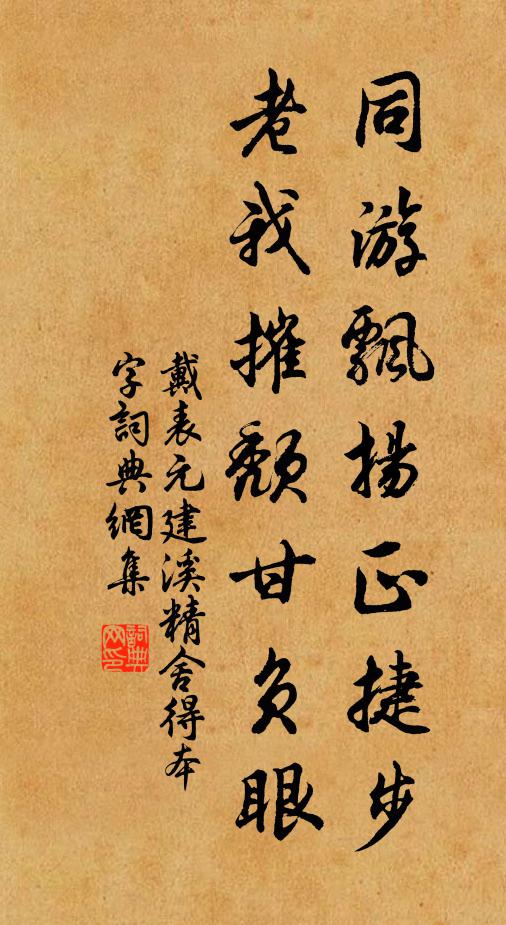 同游飄揚正捷步
老我摧頹甘負眼
戴表元建溪精舍得本
字詞典網集
詞典網印